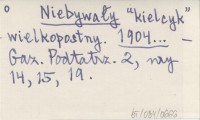 Niebywały "kielcyk"
wielkopostny. 1904... —
Gaz. Podtatrz. 2, nry
14, 15, 19.